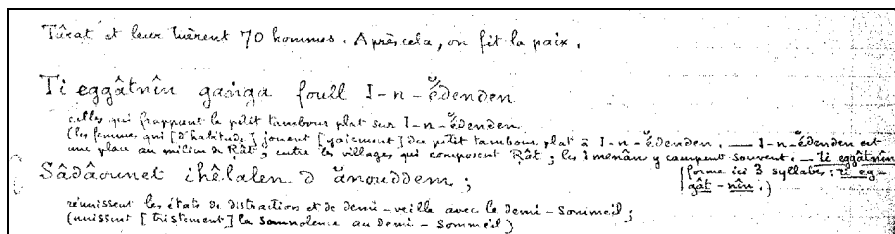 Tûrat et leur tuèrent 70 hommes. Après cela, on fit la paix.
Ti eggâtnîn gaṅga foull I-n-ĕ̂denden
celles qui frappent le petit tambour plat sur I-n-ĕ̂denden
(les femmes qui [d'habitude] jouent [gaiement] du petit tambour plat à I-n-ĕ̂denden. — I-n-ĕ̂denden est
une place au milieu de Rât, entre les villages qui composent Rât; les Imenân y campent souvent. — ti eggâtnîn
Sâdâounet ihêlalen d ănouddem;
(forme ici 3 syllabes: ti eg-
gât-nîn.)
réunissent les états de distraction et de demi-veille avec le demi-sommeil;
(unissent [tristement] la somnolence au demi-sommeil;)